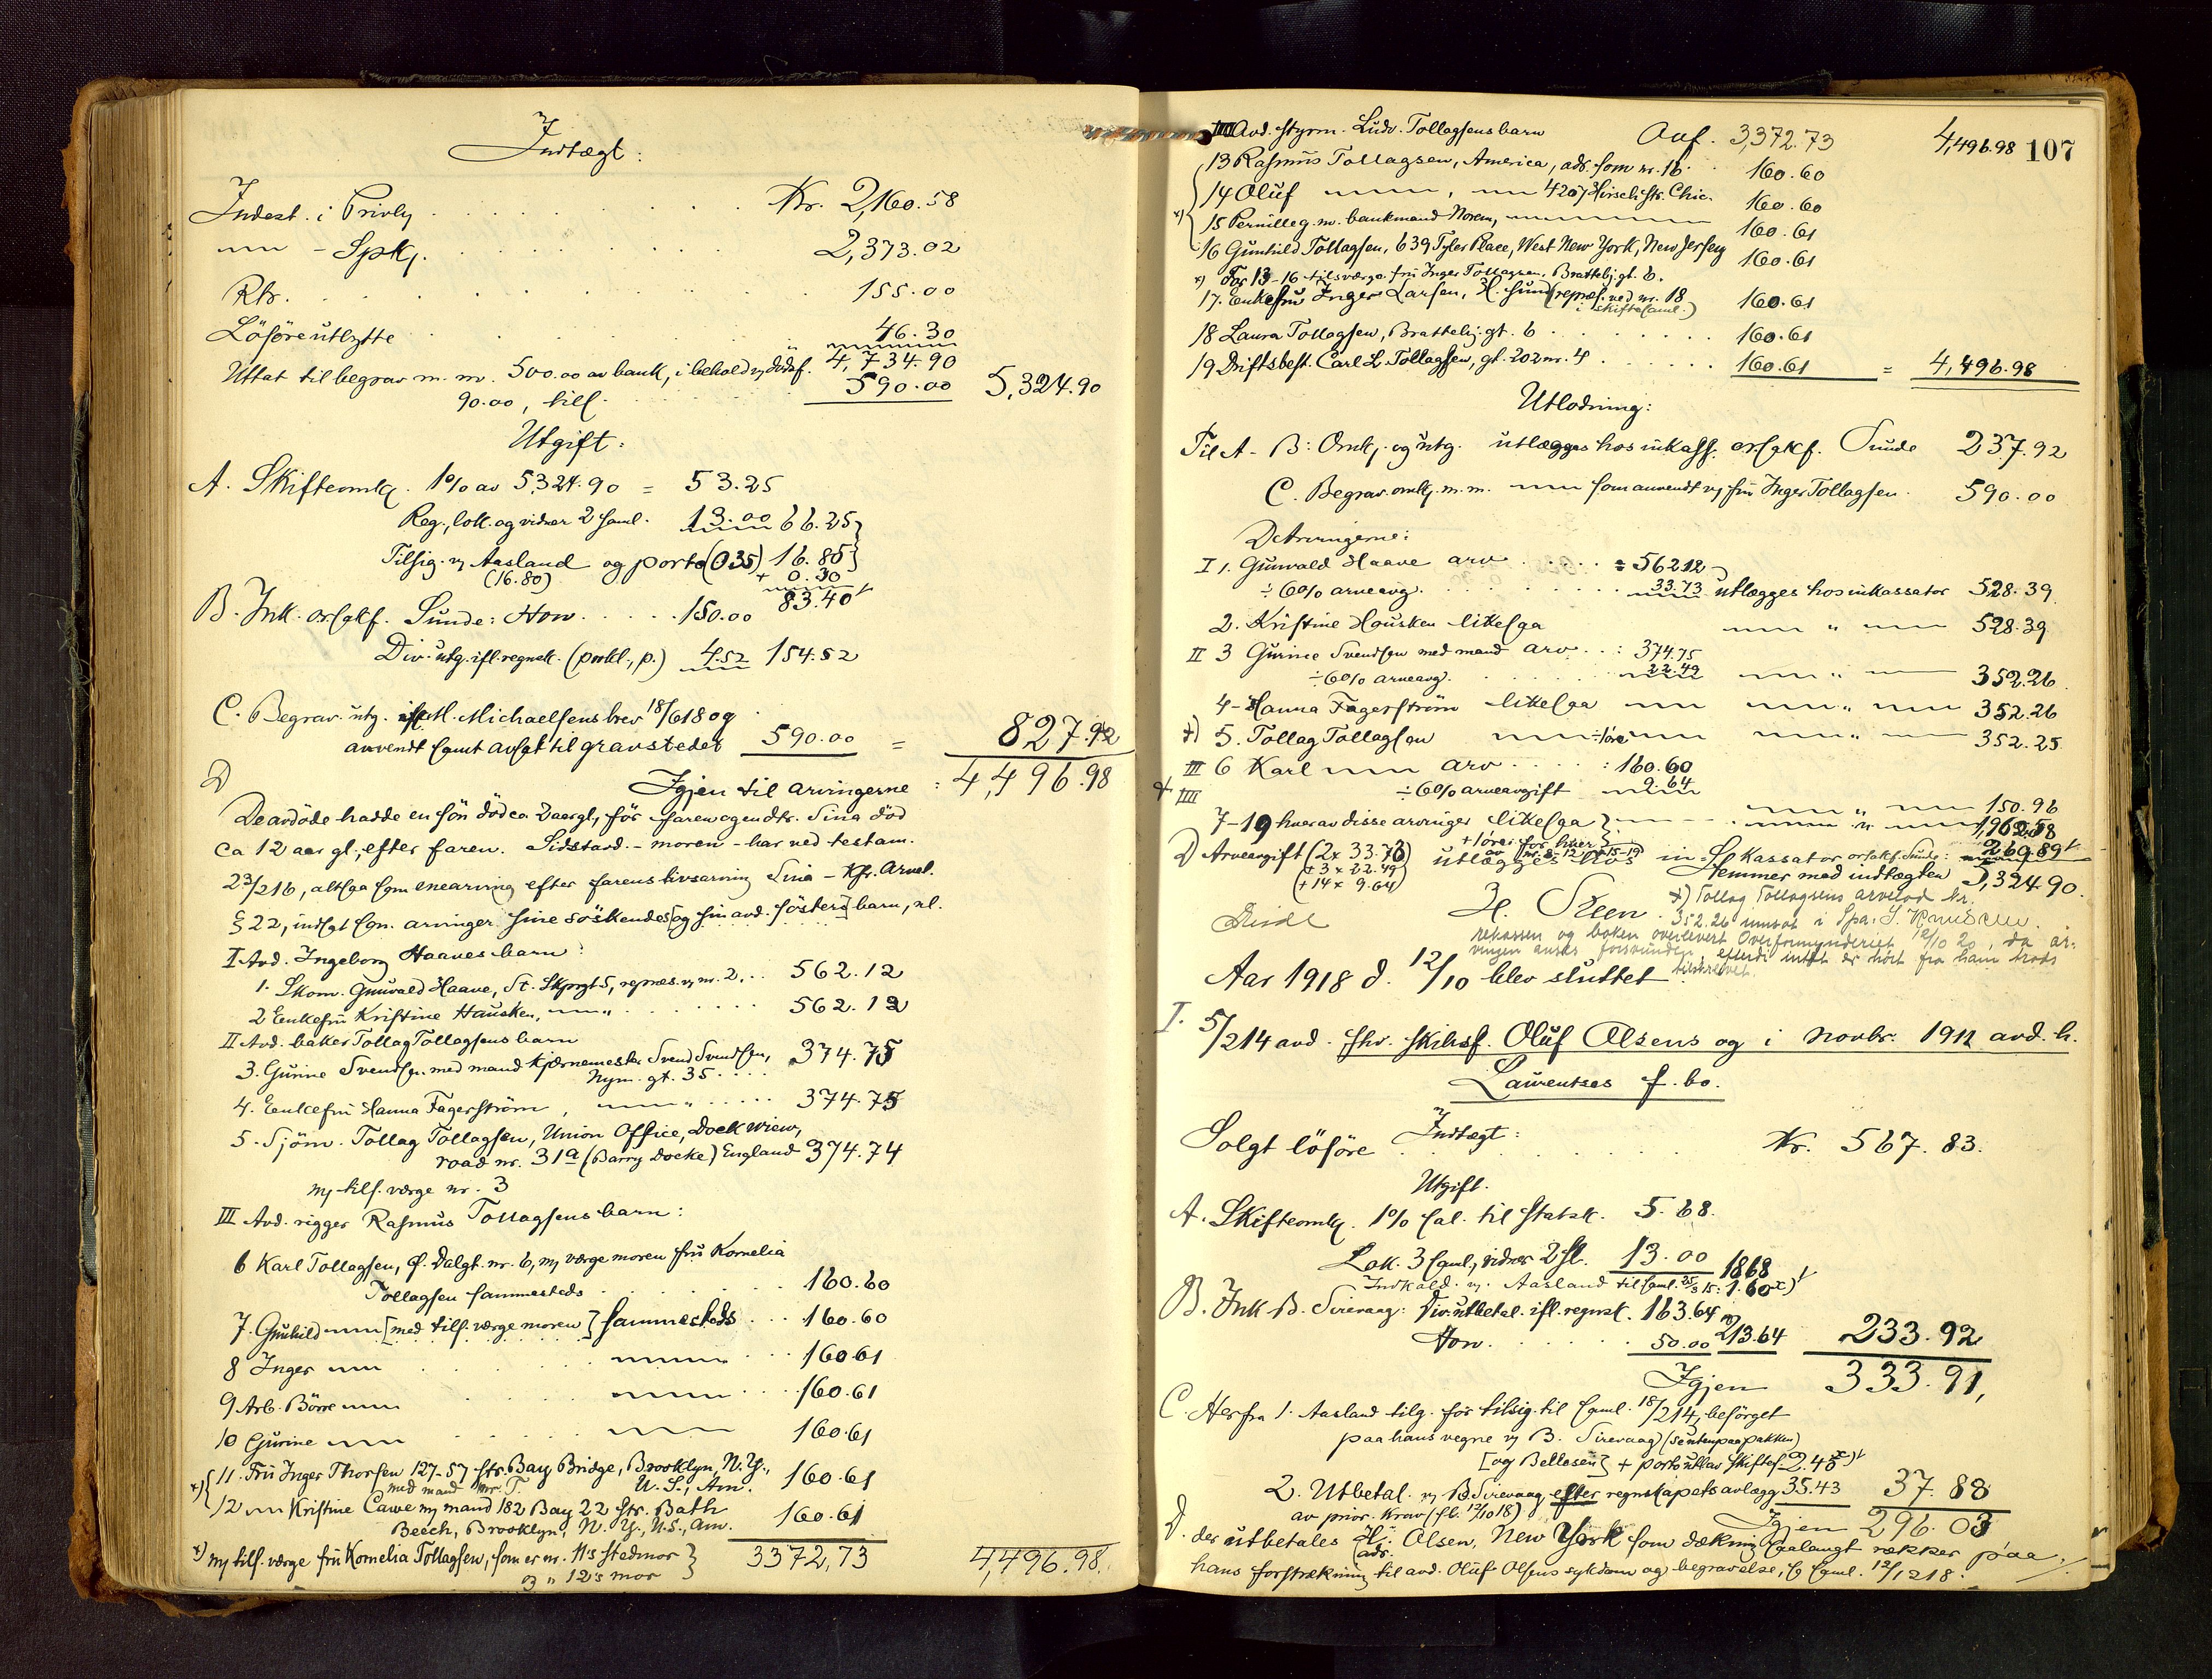 Indtægt:
Indest. i Privbg. Kr. 2,160.58
" - Spkg. 2,373.02
Rtr. 155.00
Lösöreutbytte 46.30
4,734.90
Uttat til begrav m. m. 500.00 av bank, i behold v. dödsf.
90.00, tils. 590.00 5,324.90
Utgift:
A. Skifteomkg. 1% av 5324.90 = 53.25
Reg., lok. og vidner 2 saml. 13.00 66.25
Tilsig. v. Aasland og porto (035) 16.85
(16.80) + 0.30
83.40
B. Ink. o.r.sakf. Sunde: Hon. 150.00
Div. utg. ifl. regnsk. (portl., p.) 4.52 154.52
C. Begrav. utg. ifl. M. Michaelsens brev 18/6 18 og
anvendt samt avsat til gravstedet 590.00 = 827.92
D Igjen til arvingerne : 4,496.98
De avdöde hadde en sön död ca 2 aar gl., för faren og en dtr. Sina död
ca 12 aar gl., efter faren. Sidstavd. - moren - har ved testam.
23/2 16, altsaa som enearving efter farens livsarving Sina - Kfr. Arvel.
§ 22, indsat som arvinger sine söskendes [og sin avd. sösters] barn, nl.
I Avd. Ingeborg Haaves barn:
1. Skom. Gunvald Haave, St. Skprgt 5, repræs. v. nr. 2. 562.12
2 Enkefru Kristine Hausken, " 562.12
II Avd. baker Tollag Tollagsens barn
3. Gurine Svendsen med mand kjærnemester Svend Svendsen,
Nym. gt. 35 374.75
4. Enkefru Hanna Fagerström, " 374.75
5. Sjöm. Tollag Tollagsen, Union Office, Dock wiew,
road nr. 31a (Barry Docke) England 374.74
v. tils. værge nr. 3
III Avd. rigger Rasmus Tollagsens barn:
6 Karl Tollagsen, Ö. Dalgt. nr. 6, v. værge moren fru Kornelia
Tollagsen sammesteds 160.60
7. Gunhild " [med tils. værge moren] sammesteds 160.60
8 Inger " " 160.61
9 Arb. Börre " " 160.61
10 Gurine " " 160.61
x) 11. Fru Inger Thorsen 127-57 str. Bay Bridge, Brooklyn, N. Y.,
med mand Mr. T. U. S., Am. 160.61
12 " Kristine Cawe m. mand 182 Bay 22 Str. Bath
Beech, Brooklyn, N. Y., U.S., Am. 160.61
x) v. tils. værge fru Kornelia Tollagsen, som er nr. 11's stedmor
og " 12's mor 3372,73 4,496.98.
IIII Avd. styrm. Ludv. Tollagsens barn Ovf. 3,372.73 4,496.98 107
13 Rasmus Tollagsen, America, adr. som nr. 16 160.60
14 Oluf ", " 4207 Hirsch str. Chic. 160.60
x) 15 Pernille g. m. bankmand Norem, " 160.61
16 Gunhild Tollagsen, 639 Tyler Place, West New York, New Jersey 160.61
x) For 13-16 tilsværge fru Inger Tollagsen, Brattebj. gt. 6.
17. Enkefru Inger Larsen, H. sund (repræs. ved nr. 18
i skiftesaml.) 160.61
18 Laura Tollagsen, Brattebj. gt. 6 160.61
19 Driftsbest. Carl L. Tollagsen, gl. 202 nr. 4 160.61 = 4,496.98
Utlodning:
Til A - B: Omkg. og utg. utlægges hos inkass. o.r.sakf. Sunde 237.92
C. Begrav. omkg. m. m. " som anvendt v. fru Inger Tollagsen. 590.00
D Arvingerne:
I 1. Gunvald Haave arv = 562.12
÷ 6% arveavg. 33.73 utlægges hos inkassator 528.39
2. Kristine Hausken likesaa " " " 528.39
II 3 Gurine Svendsen med mand arv : 374.75
÷ 6% arveavg. 22.49 " " 352.26
4 - Hanna Fagerström likesaa " " " 352.26
x) 5. Tollag Tollagsen " ÷ 1 öre " " " 352.25
III 6 Karl " arv : 160.60
÷ 6% arveavgift 9.64
IIII " " 150.96
7-19 hver av disse arvinger likesaa " " 1,962.58
+ 1 öre for hver
av nr. 8-12 og 15-19
D Arveavgift (2 x 33.73) utlægges hos inkassator o.r.sakf. Sunde: 269.89
(+ 3 x 22.49)
(+ 14 x 9.64) Stemmer med indtægten 5,324.90.
H. Steen.
x) Tollag Tollagsens arvelod kr.
352.26 innsat i Spa.
rekassen og boken overlevert Overformynderiet 12/10 20, da ar-
vingen ansees forsvunden, efterdi intet er hört fra ham trods
tilskrivet.
Aar 1918 d. 12/10 blev sluttet
I. 5/2 14 avd. fhv. skibsf. Oluf Olsens og i novbr. 1912 avd. h.
Laurentses f. bo.
Indtægt:
Solgt lösöre Kr. 567.83.
Utgift.
A. Skifteomkg. 1% sal. til statsk. 5.68.
Lok. 3 saml., vidner 2 sl. 13.00 18.68
Indkald. v. Aasland til saml. 25/3 15: 1.60 x)
B. Ink B. Sirevaag: Div. utbetal. ifl. regnsk. 163.64
Hon. 50.00 213.64 233.92
Igjen 333.91,
C. Herfra 1. Aasland tilg. for tilsig. til saml. 18/2 14, besörget
paa hans vegne v. B. Sirevaag (se uten paa pakken)
[og Bellesen] + porto uttar skiftef. 2.45 x)
2. Utbetal. v. B. Sirevaag efter regnskapets avlægg 35.43 37.88
av prior. Krav (fl. 12/10 18) Igjen 296.03
D. der utbetales H. Olsen, New York som dækning saalangt rækker paa
adr.
hans forstrækning til avd. Oluf Olsens sykdom og begravelse, saml. 12/12 18.